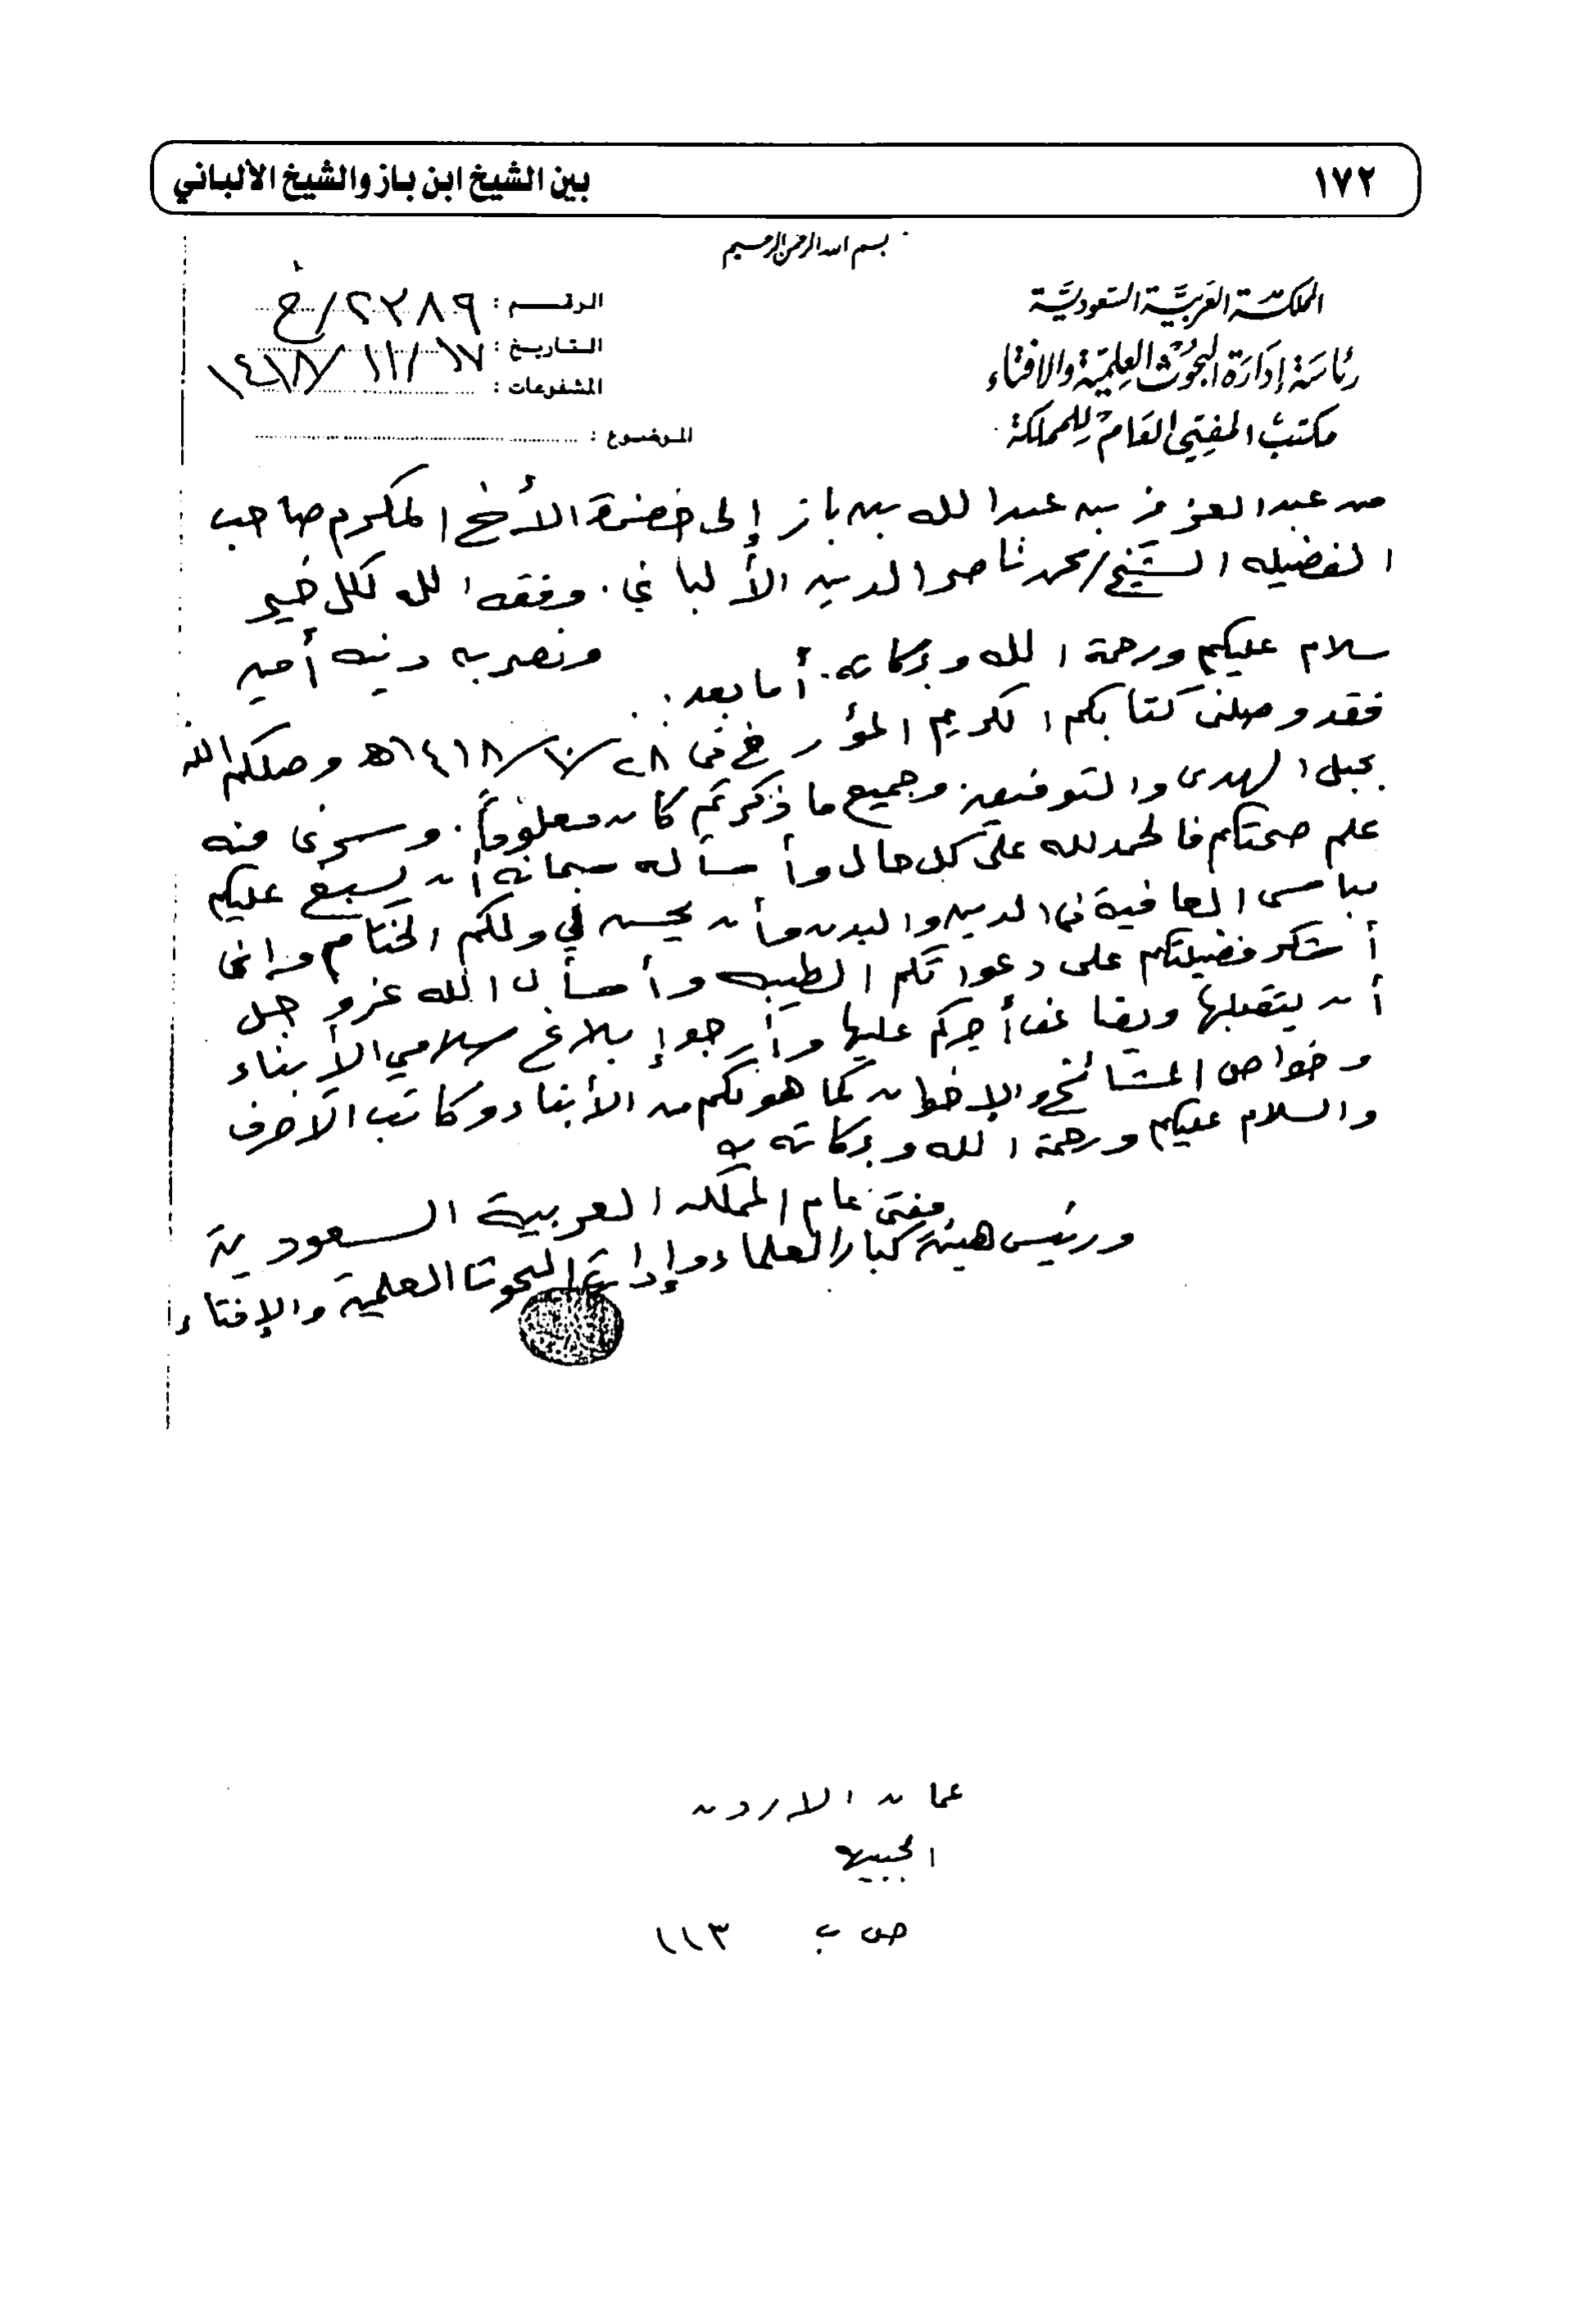 ١٧٢
بين الشيخ ابن باز والشيخ الألباني
بسم الله الرحمن الرحيم
المملكة العربية السعودية
رئاسة إدارة البحوث العلمية والافتاء
مكتب المفتي العام للمملكة
الرقم : ٢٢٨٩/خ
التاريخ : ١٧/ ١١/ ١٤١٨
المشفوعات :
الموضوع :
من عبدالعزيز بن عبدالله بن باز إلى حضرة الأخ المكرم صاحب
الفضيله الشيخ/محمد ناصر الدين الألباني . وفقه الله لكل خير
ونصر به دينه أمين
سلام عليكم ورحمة الله وبركاته . أما بعد :
فقد وصلني كتابكم الكريم المؤرخ في ٢٨/ ١٠/ ١٤١٨هـ وصلكم الله
بحبل الهدى والتوفيق وجميع ما ذكرتم كان معلوماً . وسرني منه
علم صحتكم فالحمد لله على كل حال وأسأله سبحانه أن يسبغ عليكم
لباس العافية في الدين والبدن وأن يحسن لي ولكم الختام وإني
أشكر فضيلتكم على دعواتكم الطيبه وأسأل الله عز وجل
أن يتقبلها ويضاعف أجركم عليها وأرجو إبلاغ سلامي الأبناء
وخواص المشائخ والإخوان كما هو لكم من الأبناء وكاتب الأحرف
والسلام عليكم ورحمة الله وبركاته
مفتي عام المملكه العربية السعودية
ورئيس هيئة كبار العلماء وإدارة البحوث العلمية والإفتاء
عمان الاردن
الجبيها
ص ب ١١٣